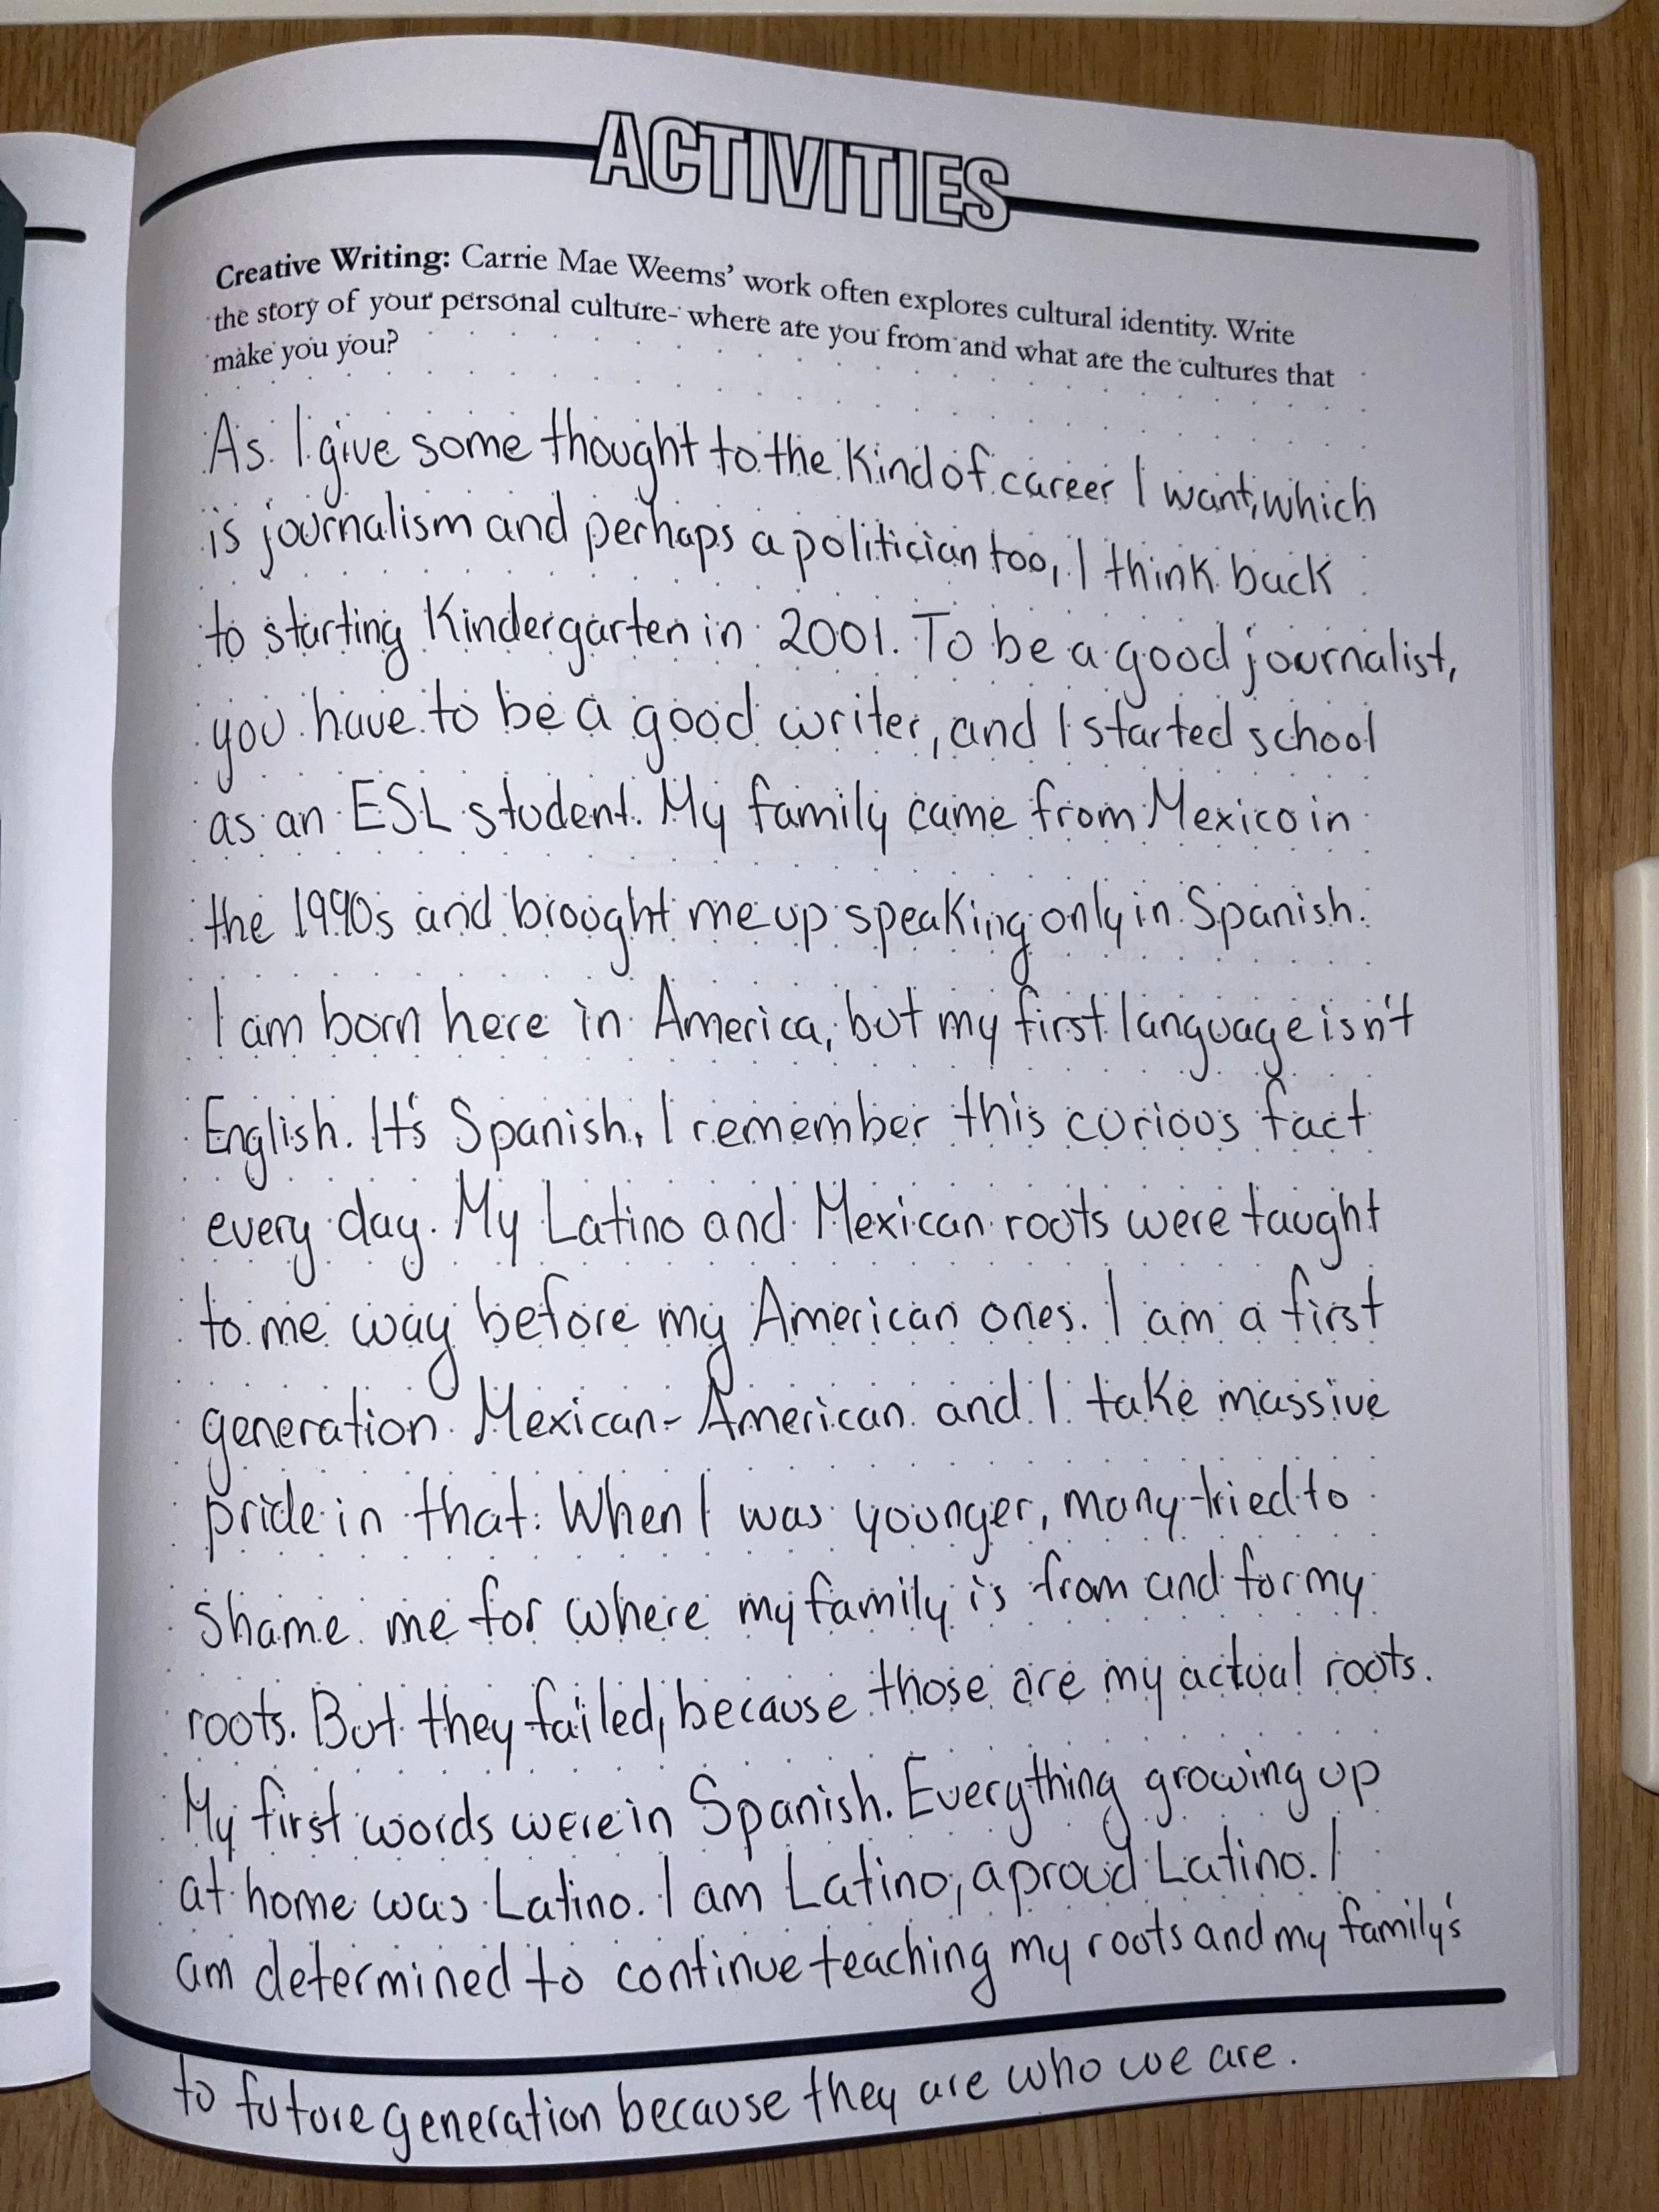 ACTIVITIES
Creative Writing: Carrie Mae Weems' work often explores cultural identity. Write
the story of your personal culture- where are you from and what are the cultures that
make you you?
As I give some thought to the kind of career I want, which
is journalism and perhaps a politician too, I think back
to starting Kindergarten in 2001. To be a good journalist,
you have to be a good writer, and I started school
as an ESL student. My family came from Mexico in
the 1990s and brought me up speaking only in Spanish.
I am born here in America, but my first language isn't
English. It's Spanish. I remember this curious fact
every day. My Latino and Mexican roots were taught
to me way before my American ones. I am a first
generation Mexican-American and I take massive
pride in that. When I was younger, many tried to
shame me for where my family is from and for my
roots. But they failed, because those are my actual roots.
My first words were in Spanish. Everything growing up
at home was Latino. I am Latino, a proud Latino. I
am determined to continue teaching my roots and my family's
to future generation because they are who we are.